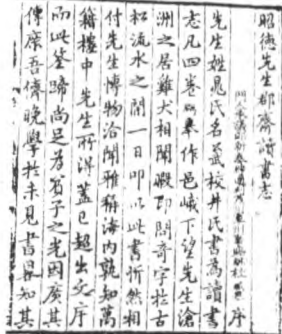 昭德先生郡齋讀書志
序
先生姓晁氏名公武校井氏書為讀書
志凡四卷 作邑峨下望先生滄
洲之居雞犬相聞暇即問奇字於古
松流水之間一日叩以此書忻然相
付先生博物洽聞雅稱海内孰知萬
籤樓中先生所得蓋已超出文字
而此筌蹄尚足為賓子之光因廣其
傳庶吾儕晚學於未見書畧知其